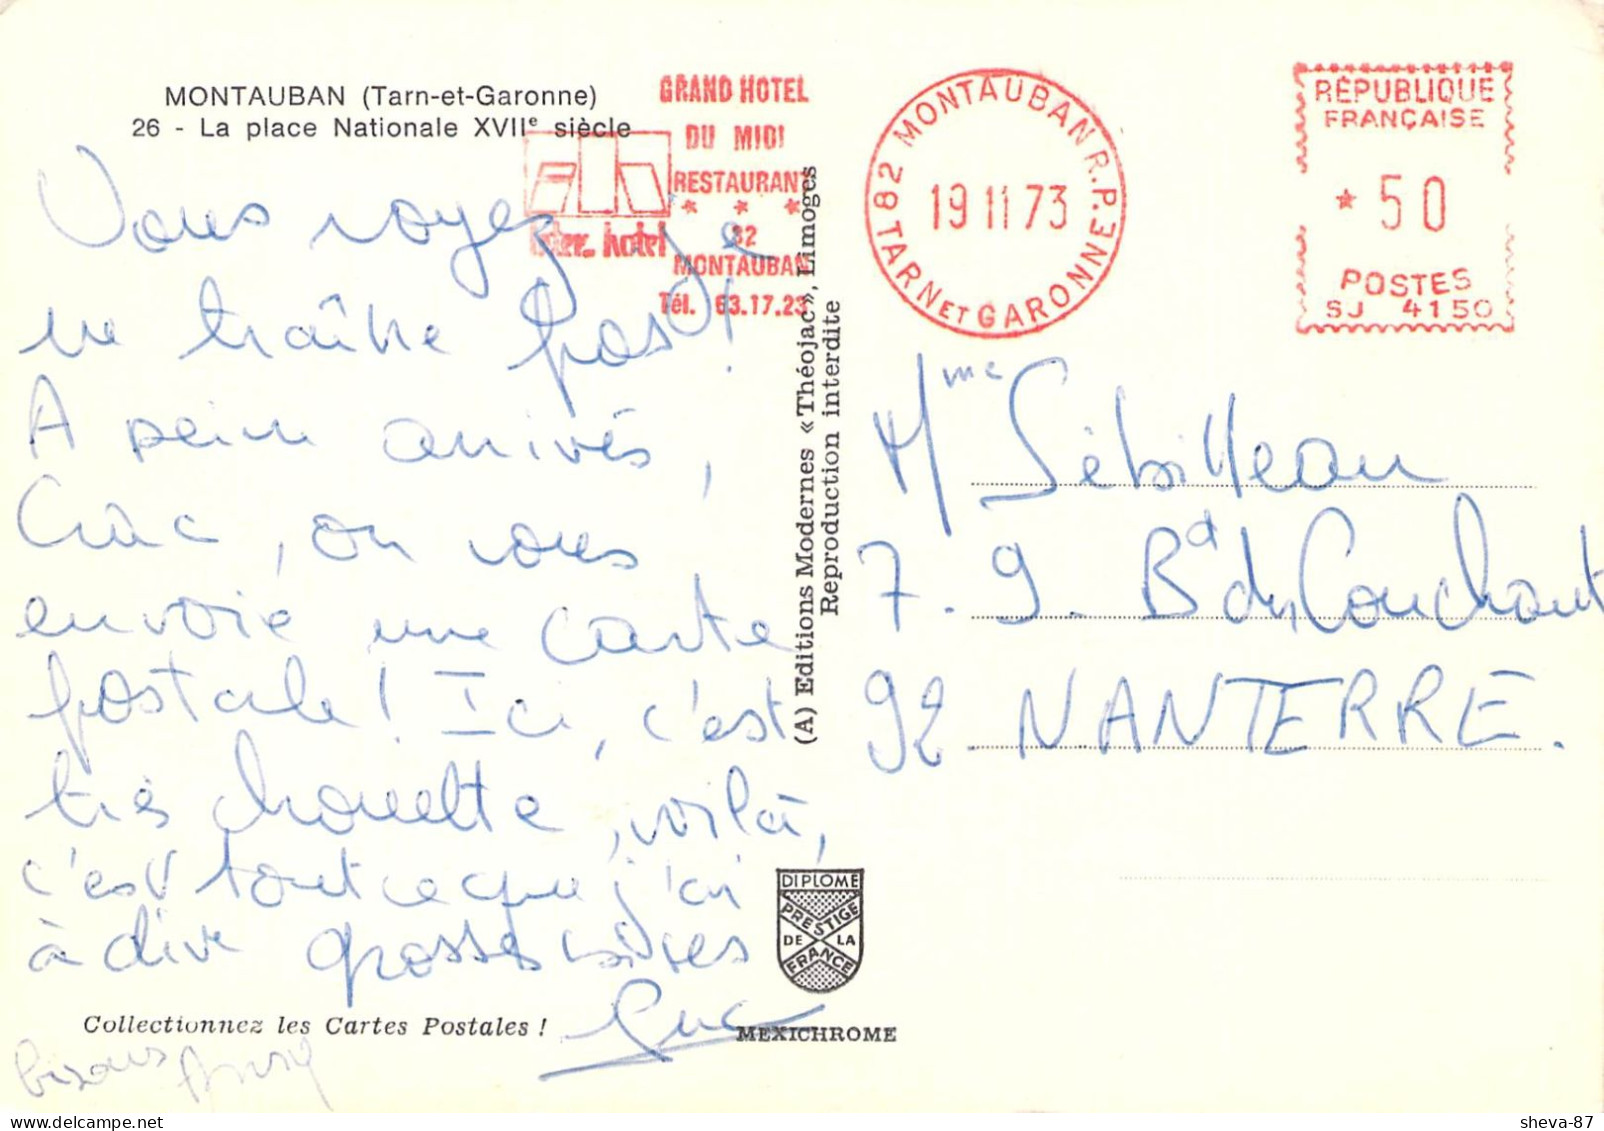 MONTAUBAN (Tarn-et-Garonne)
26 - La place Nationale XVIIe siècle
GRAND HOTEL
DU MIDI
RESTAURANT
* * *
82
MONTAUBAN
Tél. 63.17.23
inter. hotel
82 MONTAUBAN R.P.
19 11 73
TARN ET GARONNE
RÉPUBLIQUE
FRANÇAISE
* 50
POSTES
SJ 4150
Vous voyez, je
ne traîne pas!
A peine arrivés,
Crac, on vous
envoie une carte
postale! Ici, c'est
très chouette, voilà,
c'est tout ce que j'ai
à dire grosses bises
Luc
bisous
(A) Editions Modernes «Théojac», Limoges
Reproduction interdite
Mme Sébilleau
7-9 Bd du Couchant
92 NANTERRE.
DIPLOME
PRESTIGE
DE LA
FRANCE
Collectionnez les Cartes Postales !
MEXICHROME
sheva-87